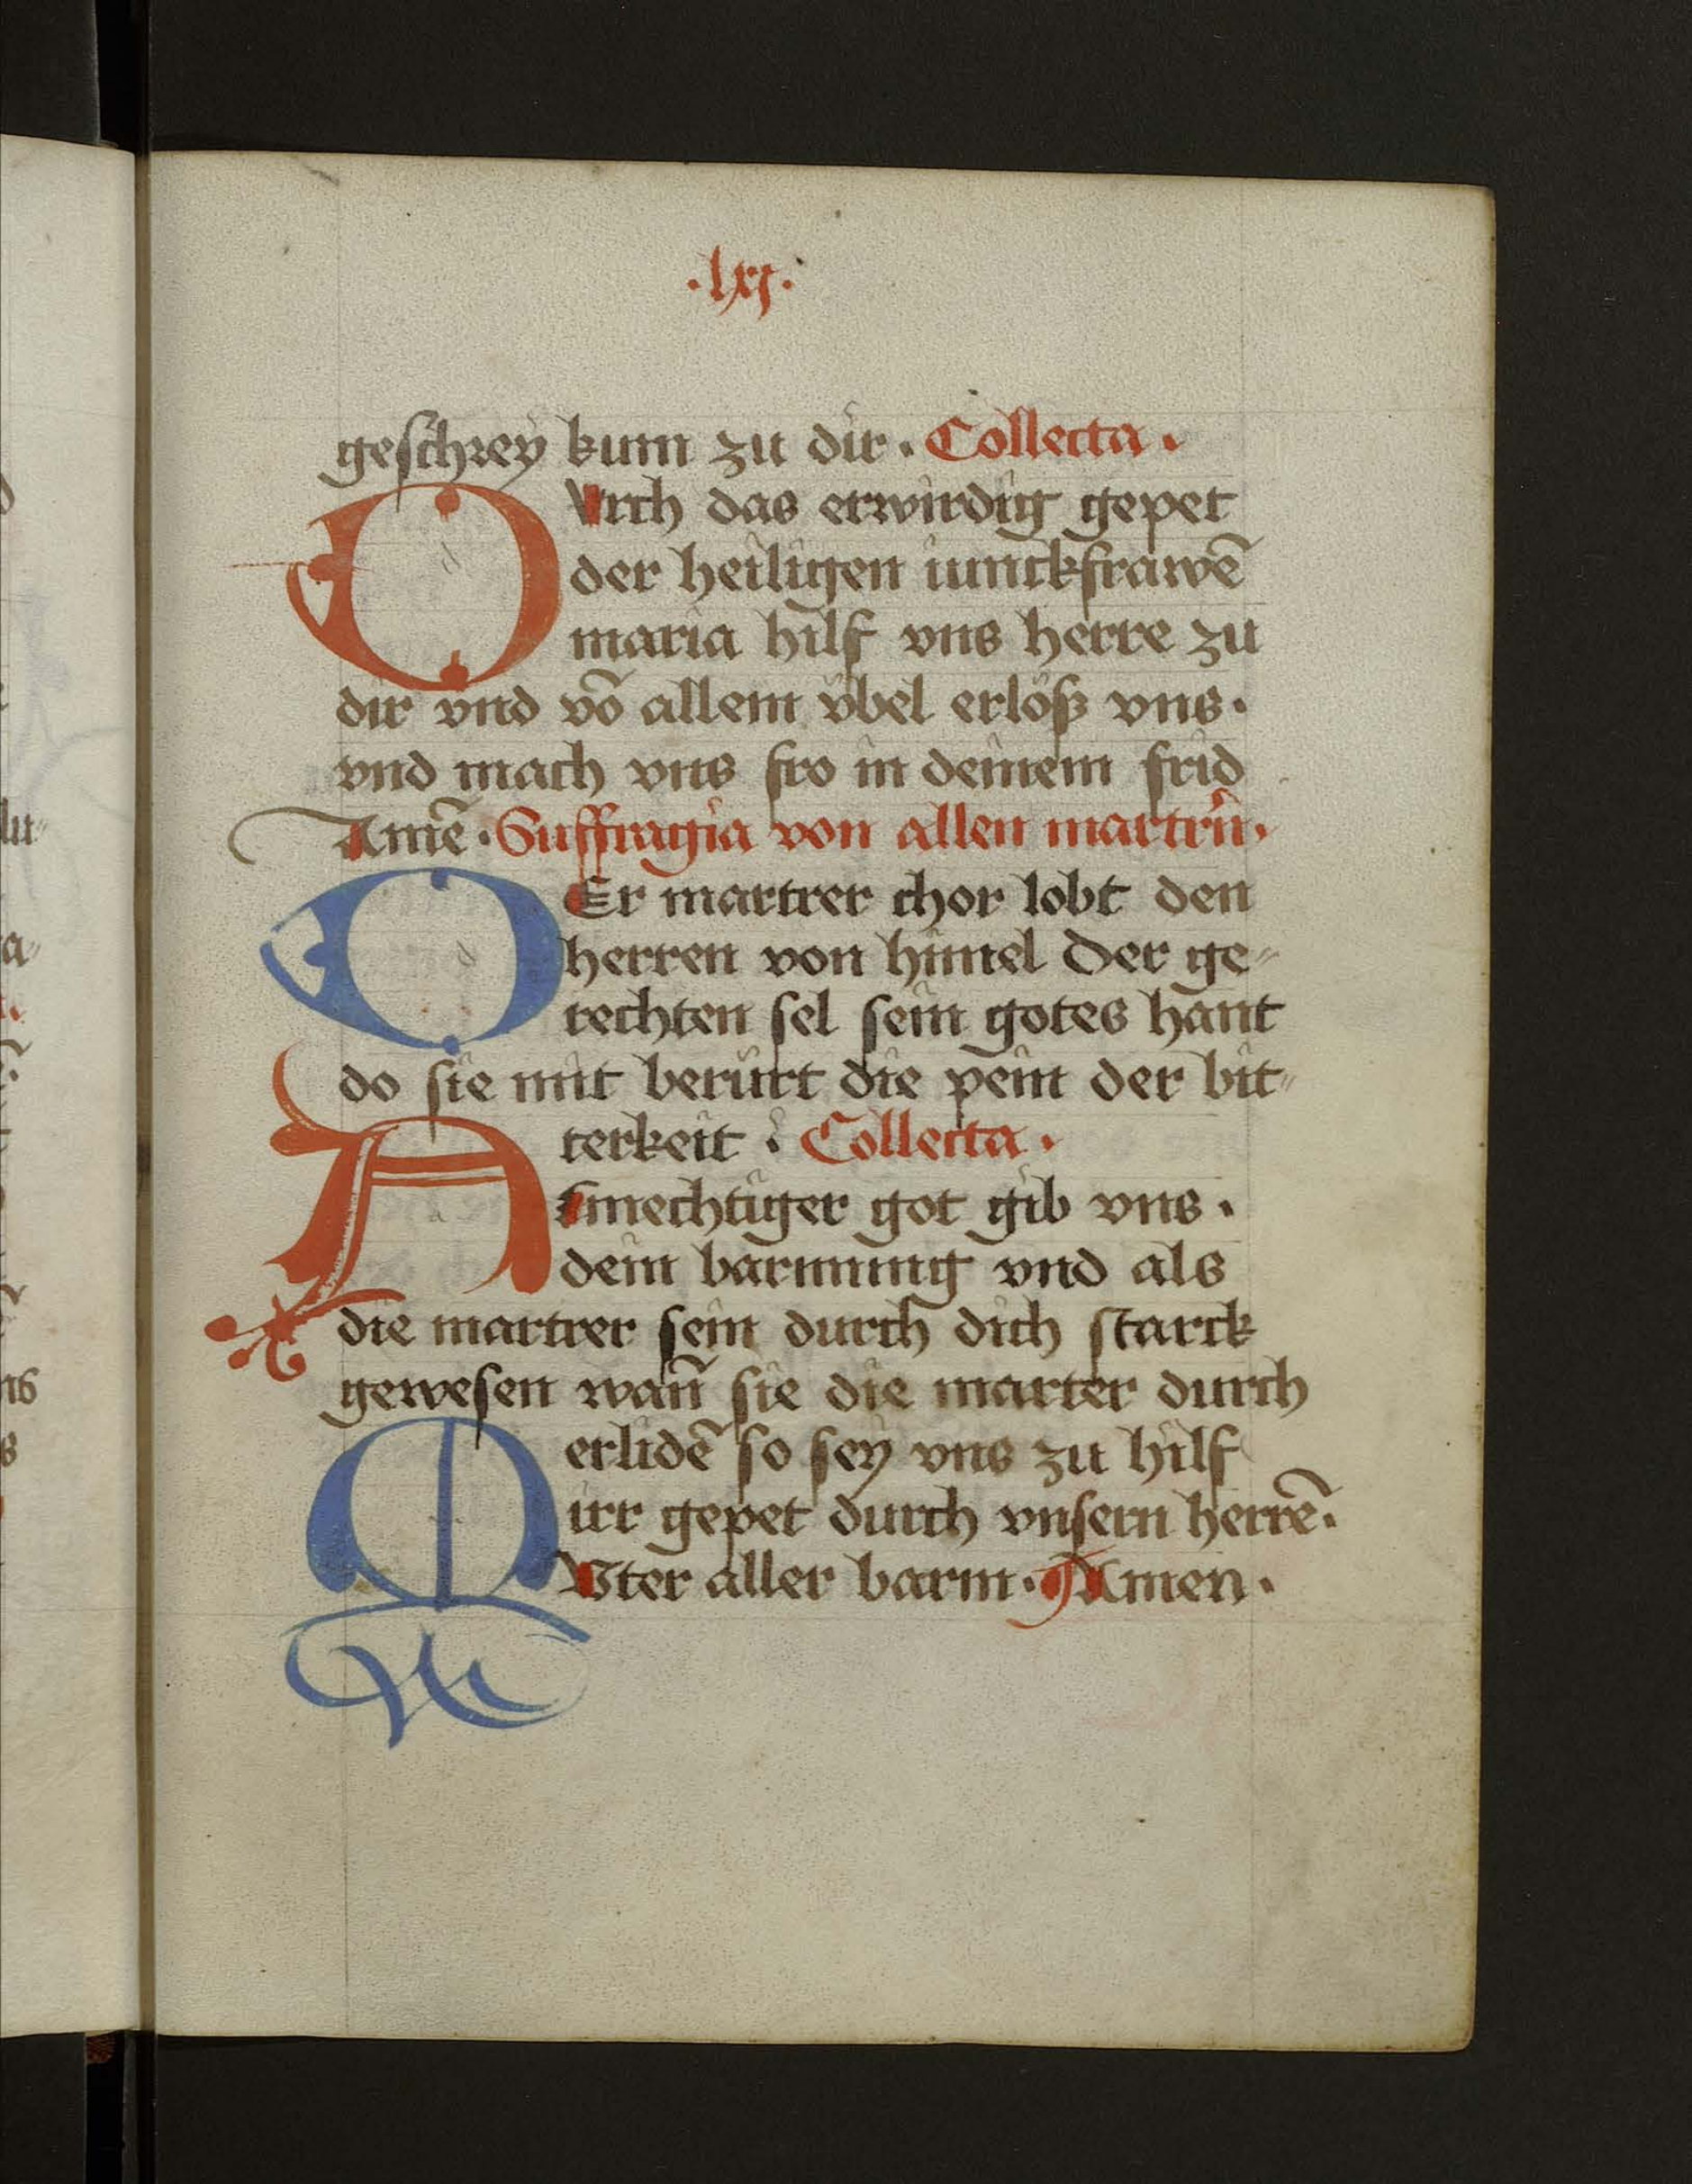 ·lxj·
geschrey kum zu dir · Collecta ·
DVrch das erwirdig gepet
der heiligen iunckfrawē
maria hilf vns herre zu
dir vnd vō allem v̈bel erlöß vns ·
vnd mach vns fro in deinem frid
Amē · Suffragia von allen martrn̄ ·
DEr martrer chor lobt den
herren von himel Der ge⸗
rechten sel sein gotes hant
do sie nit berürt die pein der bit⸗
terkeit : Collecta ·
Almechtiger got gib vns ·
dein barmung vnd als
die martrer sein durch dich starck
gewesen wan̄ sie die marter durch
erlidē so sey vns zu hilf
irr gepet durch vnsern herrē ·
MVter aller barm · Amen ·